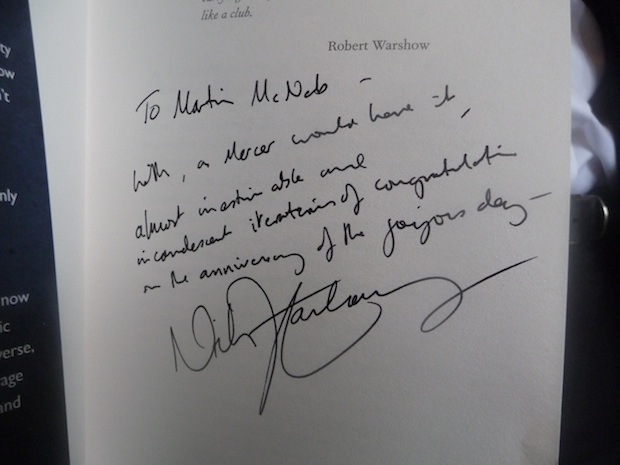 like a club.
Robert Warshow
To Martin McNab –
With, as Mercer would have it,
almost inestimable and
incandescent iterations of congratulation
on the anniversary of the joyous day –
Nick Harkaway
ty
ow
n't
nly
now
ic
erse,
age
and